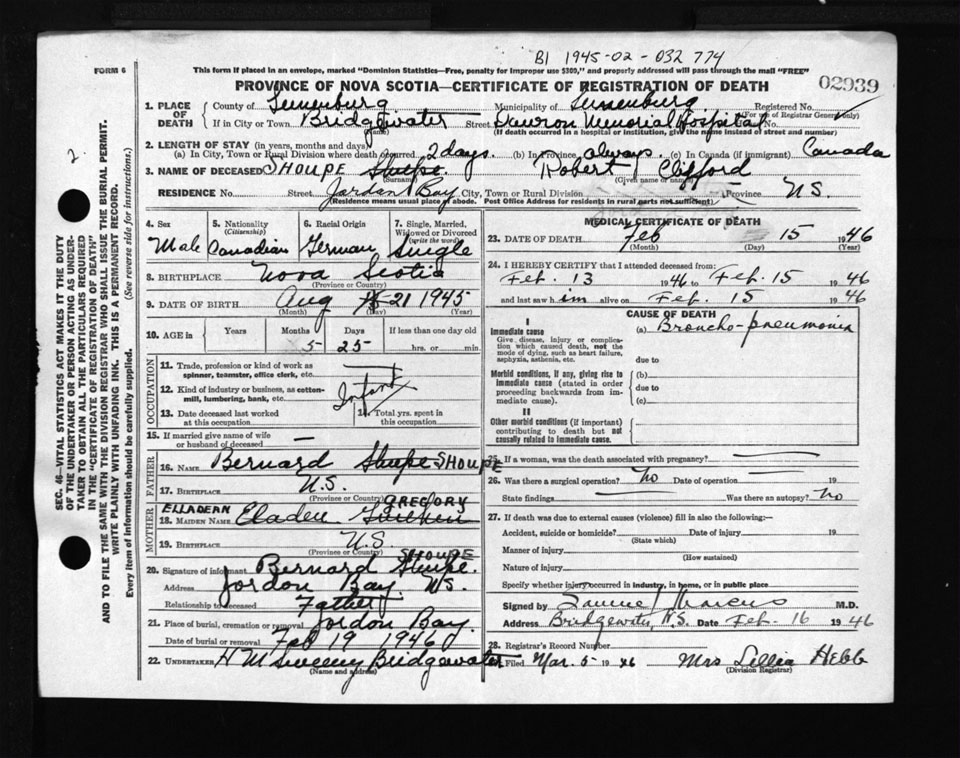 B1 1945-02-032 774
FORM 6
This form if placed in an envelope, marked "Dominion Statistics—Free, penalty for improper use $300," and properly addressed will pass through the mail "FREE"
02939
PROVINCE OF NOVA SCOTIA—CERTIFICATE OF REGISTRATION OF DEATH
1. PLACE OF DEATH
County of Lunenburg Municipality of Lunenburg Registered No.
(For use of Registrar General only)
If in City or Town Bridgewater Street Dawson Memorial Hospital No.
(If death occurred in a hospital or institution, give the name instead of street and number)
2. LENGTH OF STAY (in years, months and days)
(a) In City, Town or Rural Division where death occurred 2 days. (b) In Province always. (c) In Canada (if immigrant) Canada
3. NAME OF DECEASED SHOUPE Shupe. Robert Clifford
(Surname) (Given name or names)
RESIDENCE No. Street Jordan Bay City, Town or Rural Division Province N.S.
(Residence means usual place of abode. Post Office Address for residents in rural parts not sufficient)
4. Sex Male
5. Nationality (Citizenship) Canadian
6. Racial Origin German
7. Single, Married, Widowed or Divorced (write the word) Single
8. BIRTHPLACE Nova Scotia
(Province or Country)
9. DATE OF BIRTH Aug 21 1945
(Month) (Day)
10. AGE in Years Months Days If less than one day old
5 25 hrs. or min.
OCCUPATION
11. Trade, profession or kind of work as spinner, teamster, office clerk, etc.
12. Kind of industry or business, as cotton-mill, lumbering, bank, etc.
Infant
13. Date deceased last worked at this occupation
14. Total yrs. spent in this occupation
15. If married give name of wife or husband of deceased —
FATHER
16. NAME Bernard Shupe SHOUPE
17. BIRTHPLACE N.S.
(Province or Country)
MOTHER
ELLADEAN GREGORY
18. MAIDEN NAME Eladee
19. BIRTHPLACE N.S.
(Province or Country)
SHOUPE
20. Signature of informant Bernard Shupe.
Address Jordon Bay. N.S.
Relationship to deceased Father
21. Place of burial, cremation or removal Jordon Bay.
Date of burial or removal Feb 19 1946
22. UNDERTAKER H M Sweeny Bridgewater
(Name and address)
MEDICAL CERTIFICATE OF DEATH
23. DATE OF DEATH Feb 15 1946
(Month) (Day)
24. I HEREBY CERTIFY that I attended deceased from:
Feb. 13 1946 to Feb. 15 1946
and last saw h im alive on Feb. 15 1946
CAUSE OF DEATH
I
Immediate cause
Give disease, injury or complication which caused death, not the mode of dying, such as heart failure, asphyxia, asthenia, etc.
(a) Broncho-pneumonia
due to
Morbid conditions, if any, giving rise to immediate cause (stated in order proceeding backwards from immediate cause).
(b)
due to
(c)
II
Other morbid conditions (if important) contributing to death but not causally related to immediate cause.
25. If a woman, was the death associated with pregnancy?
26. Was there a surgical operation? No Date of operation 19
State findings Was there an autopsy? No
27. If death was due to external causes (violence) fill in also the following:-
Accident, suicide or homicide? Date of injury 19
(State which)
Manner of injury
(How sustained)
Nature of injury
Specify whether injury occurred in industry, in home, or in public place
Signed by Samuel Marcus M.D.
Address Bridgewater, N.S. Date Feb. 16 1946
28. Registrar's Record Number
Filed Mar. 5 1946 Mrs Lillia Hebb
(Division Registrar)
SEC. 46—VITAL STATISTICS ACT MAKES IT THE DUTY
OF THE UNDERTAKER OR PERSON ACTING AS UNDER-
TAKER TO OBTAIN ALL THE PARTICULARS REQUIRED
IN THE "CERTIFICATE OF REGISTRATION OF DEATH"
AND TO FILE THE SAME WITH THE DIVISION REGISTRAR WHO SHALL ISSUE THE BURIAL PERMIT.
WRITE PLAINLY WITH UNFADING INK. THIS IS A PERMANENT RECORD.
Every item of information should be carefully supplied. (See reverse side for instructions.)
2.